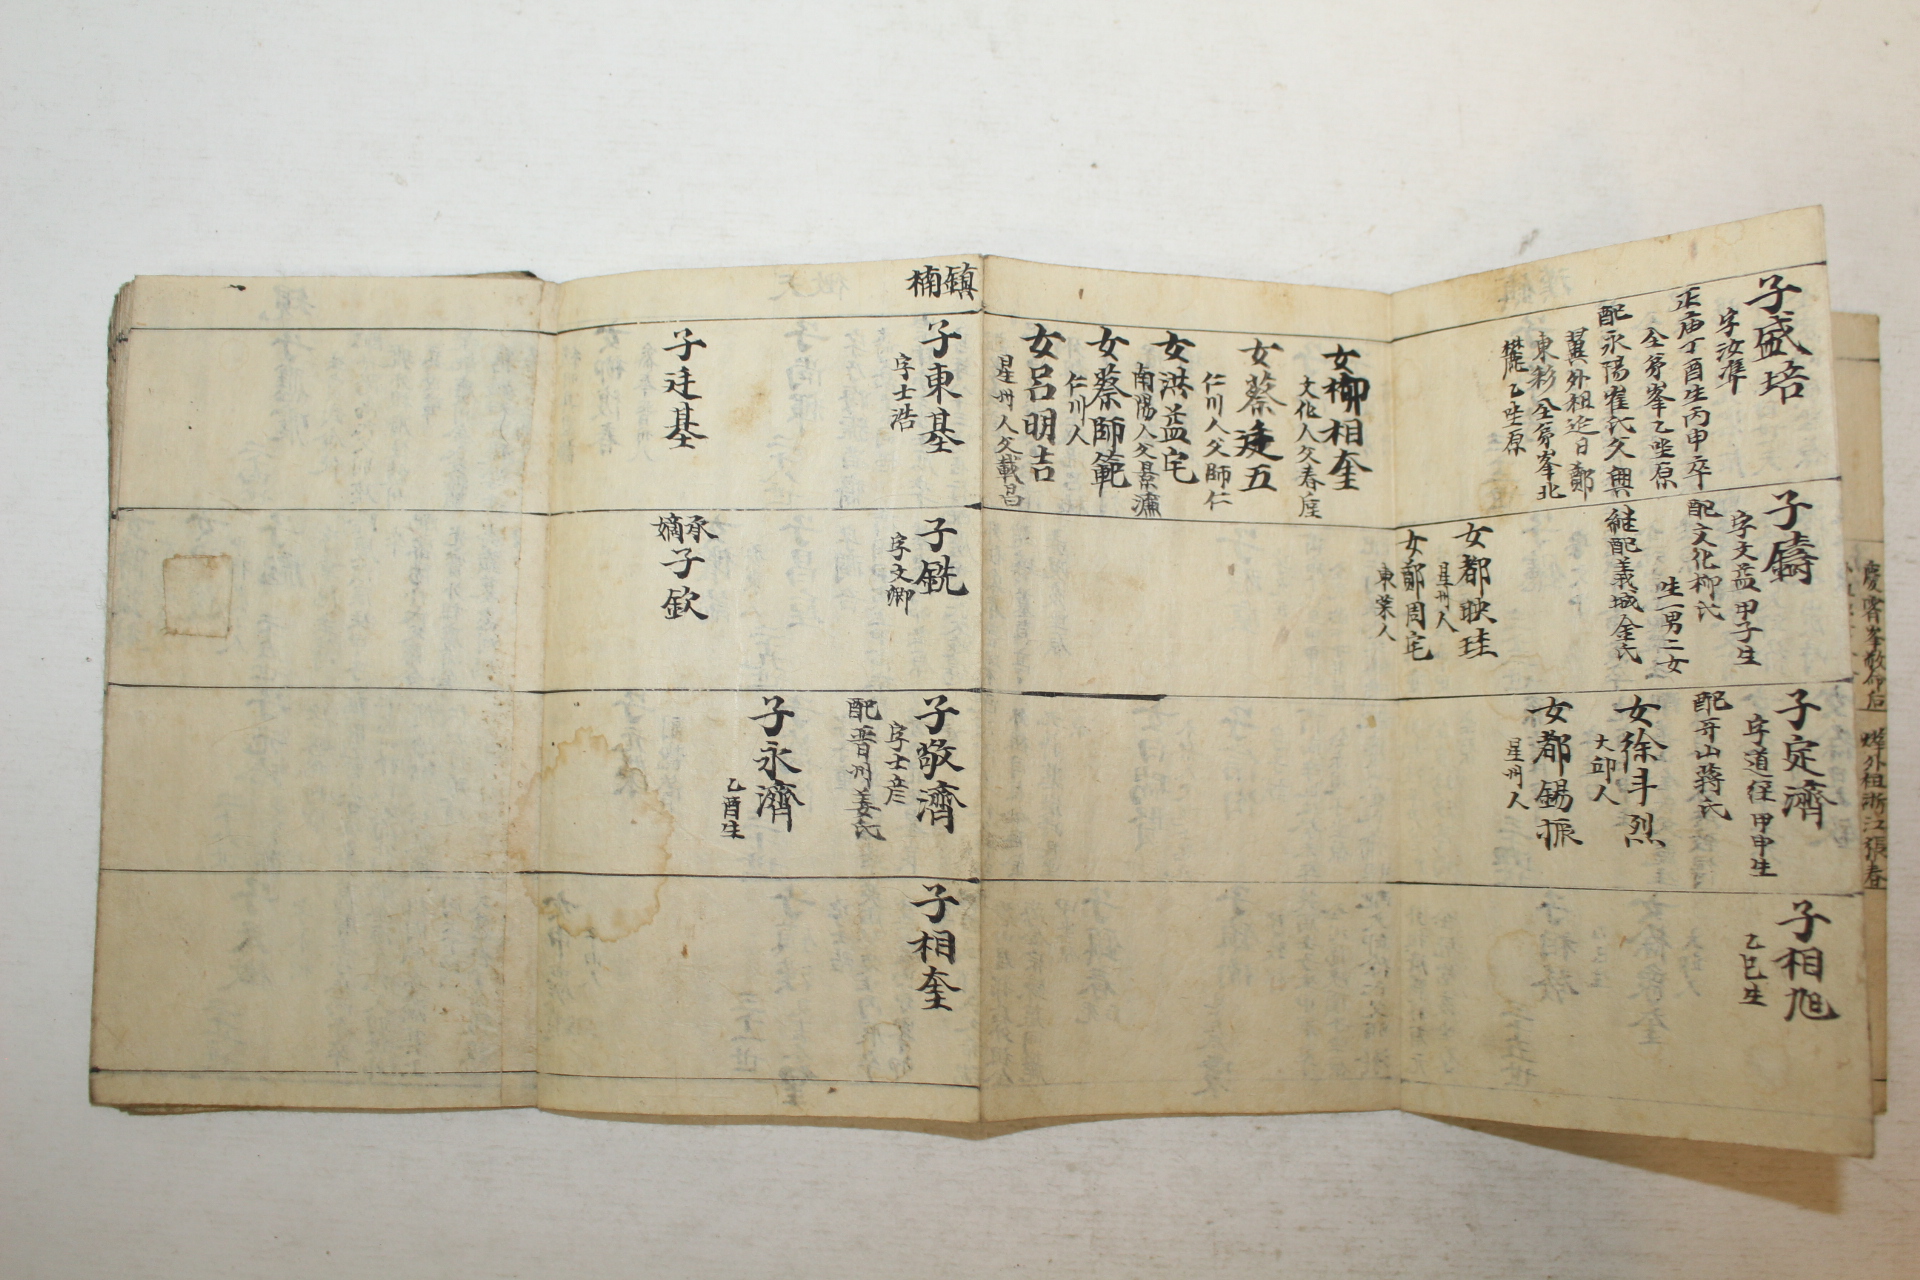 子盛培
字汝準
正庙丁酉生丙申卒
全夯峯乙坐原
配永陽崔氏父興
翼外祖迨日鄭
東彩全夯峯北
麓乙坐原
女柳相奎
文化人父春
女蔡建五
仁川人父師仁
女洪益宅
南陽人父景濂
女蔡師範
仁川人
女呂明吉
星州人父載昌
子鑄
字文益甲子生
配文化柳氏
生一男二女
継配義城金氏
女都映珪
星州人
女鄭周宅
東萊人
子定濟
字道徑甲申生
配牙山蔣氏
女徐斗烈
大邱人
女都錫振
星州人
子相旭
乙巳生
鎮
楠
子東基
字士浩
子廷基
子銑
字文卿
承
嫡
子欽
子敬濟
字士彦
配晋州姜氏
子永濟
乙酉生
子相奎
外祖浙江張春